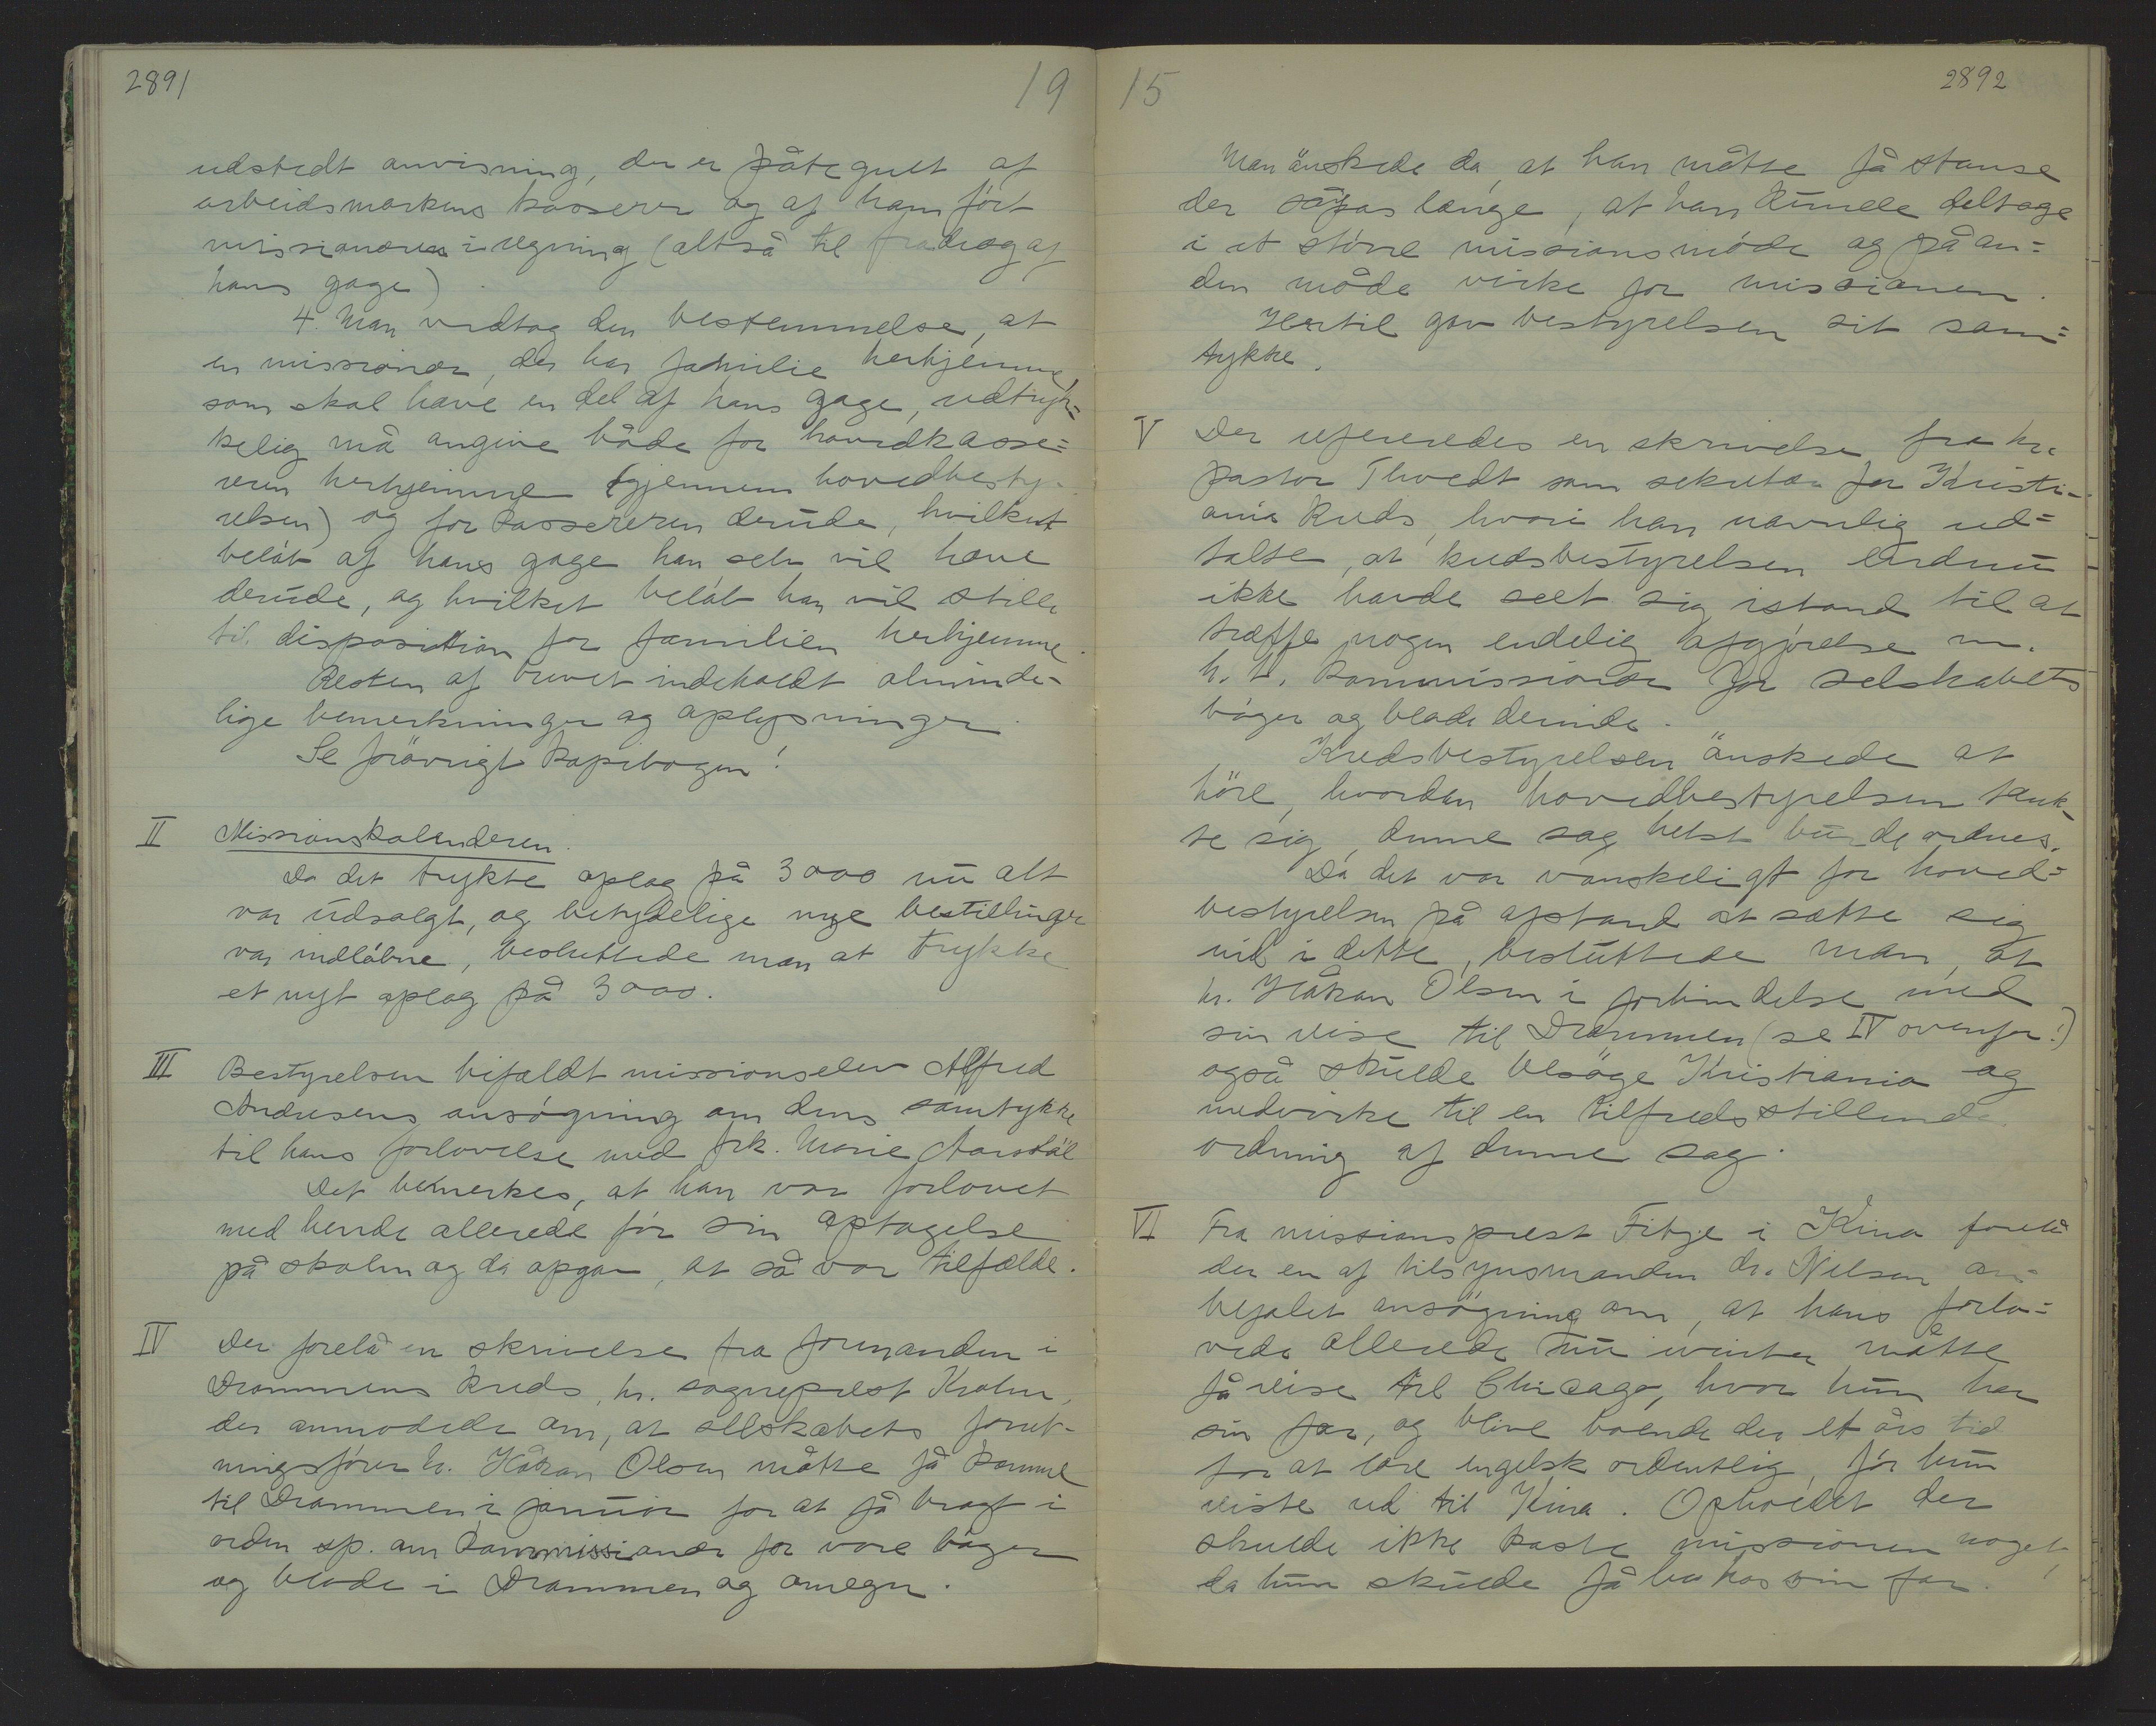 2891
19
udstedt anvisning, der er påtegnet af
arbeidsmarkens kasserer og af ham ført
missionæren i regning (altså til fradrag af
hans gage).
4. Man vedtog den bestemmelse, at
en missionær, der har familie herhjemme,
som skal have en del af hans gage, udtryk=
kelig må angive både for hovedkasse=
reren herhjemme (gjennem hovedbesty-
relsen) og for kassereren derude, hvilket
beløb af hans gage han selv vil have
derude, og hvilket beløb han vil stille
til disposition for familien herhjemme.
Resten af brevet indeholdt alminde-
lige bemerkninger og oplysninger.
Se forövrigt kopibogen!
II Missionskalenderen.
Da det trykte oplag på 3000 nu alt
var udsolgt, og betydelige nye bestillinger
var indløbne, besluttede man at trykke
et nyt oplag på 3000.
III Bestyrelsen bifaldt missionselev Alfred
Andresens ansøgning om dens samtykke
til hans forlovelse med frk. Marie
Det bemerkes, at han var forlovet
med hende allerede før sin optagelse
på skolen og da opgav, at så var tilfælde.
IV Der forelå en skrivelse fra formanden i
Drammens kreds, hr. sogneprest Krohn,
der anmodede om, at selskabets forret-
ningsfører hr. Håkon Olsen måtte få komme
til Drammen i januar for at få bragt i
orden sp. om kommissionær for vore bøger
og blade i Drammen og omegn.
15
2892
Man önskede da, at han måtte få stanse
der såpas længe, at han kunde deltage
i et större missionsmöde og på an=
den måde virke for missionen.
Hertil gav bestyrelsen sit sam=
tykke.
V Der refereredes en skrivelse fra hr.
pastor Thvedt som sekretær for Kristi-
ania kreds, hvori han navnlig ud=
talte, at kredsbestyrelsen endnu
ikke havde seet sig istand til at
træffe nogen endelig afgjørelse m.
h. t. kommissionær for selskabets
bøger og blade derinde.
Kredsbestyrelsen önskede at
höre, hvordan hovedbestyrelsen tænk-
te sig, denne sag helst burde ordnes.
Da det var vanskeligt for hoved=
bestyrelsen på afstand at sætte sig
ind i dette, besluttede man, at
hr. Håkon Olsen i forbindelse med
sin reise til Drammen (se IV ovenfor!)
også skulde besöge Kristiania og
medvirke til en tilfredsstillende
ordning af denne sag.
VI Fra missionsprest Fitje i Kina forelå
der en af tilsynsmanden dr. Nilsen an-
befalet ansøgning om, at hans forlo=
vede allerede nu ivinter måtte
få reise til Chicago, hvor hun har
sin far, og blive boende der et års tid
for at lære engelsk ordentlig, før hun
reiste ud til Kina. Opholdet der
skulde ikke koste missionen noget,
da hun skulde få bo hos sin far.